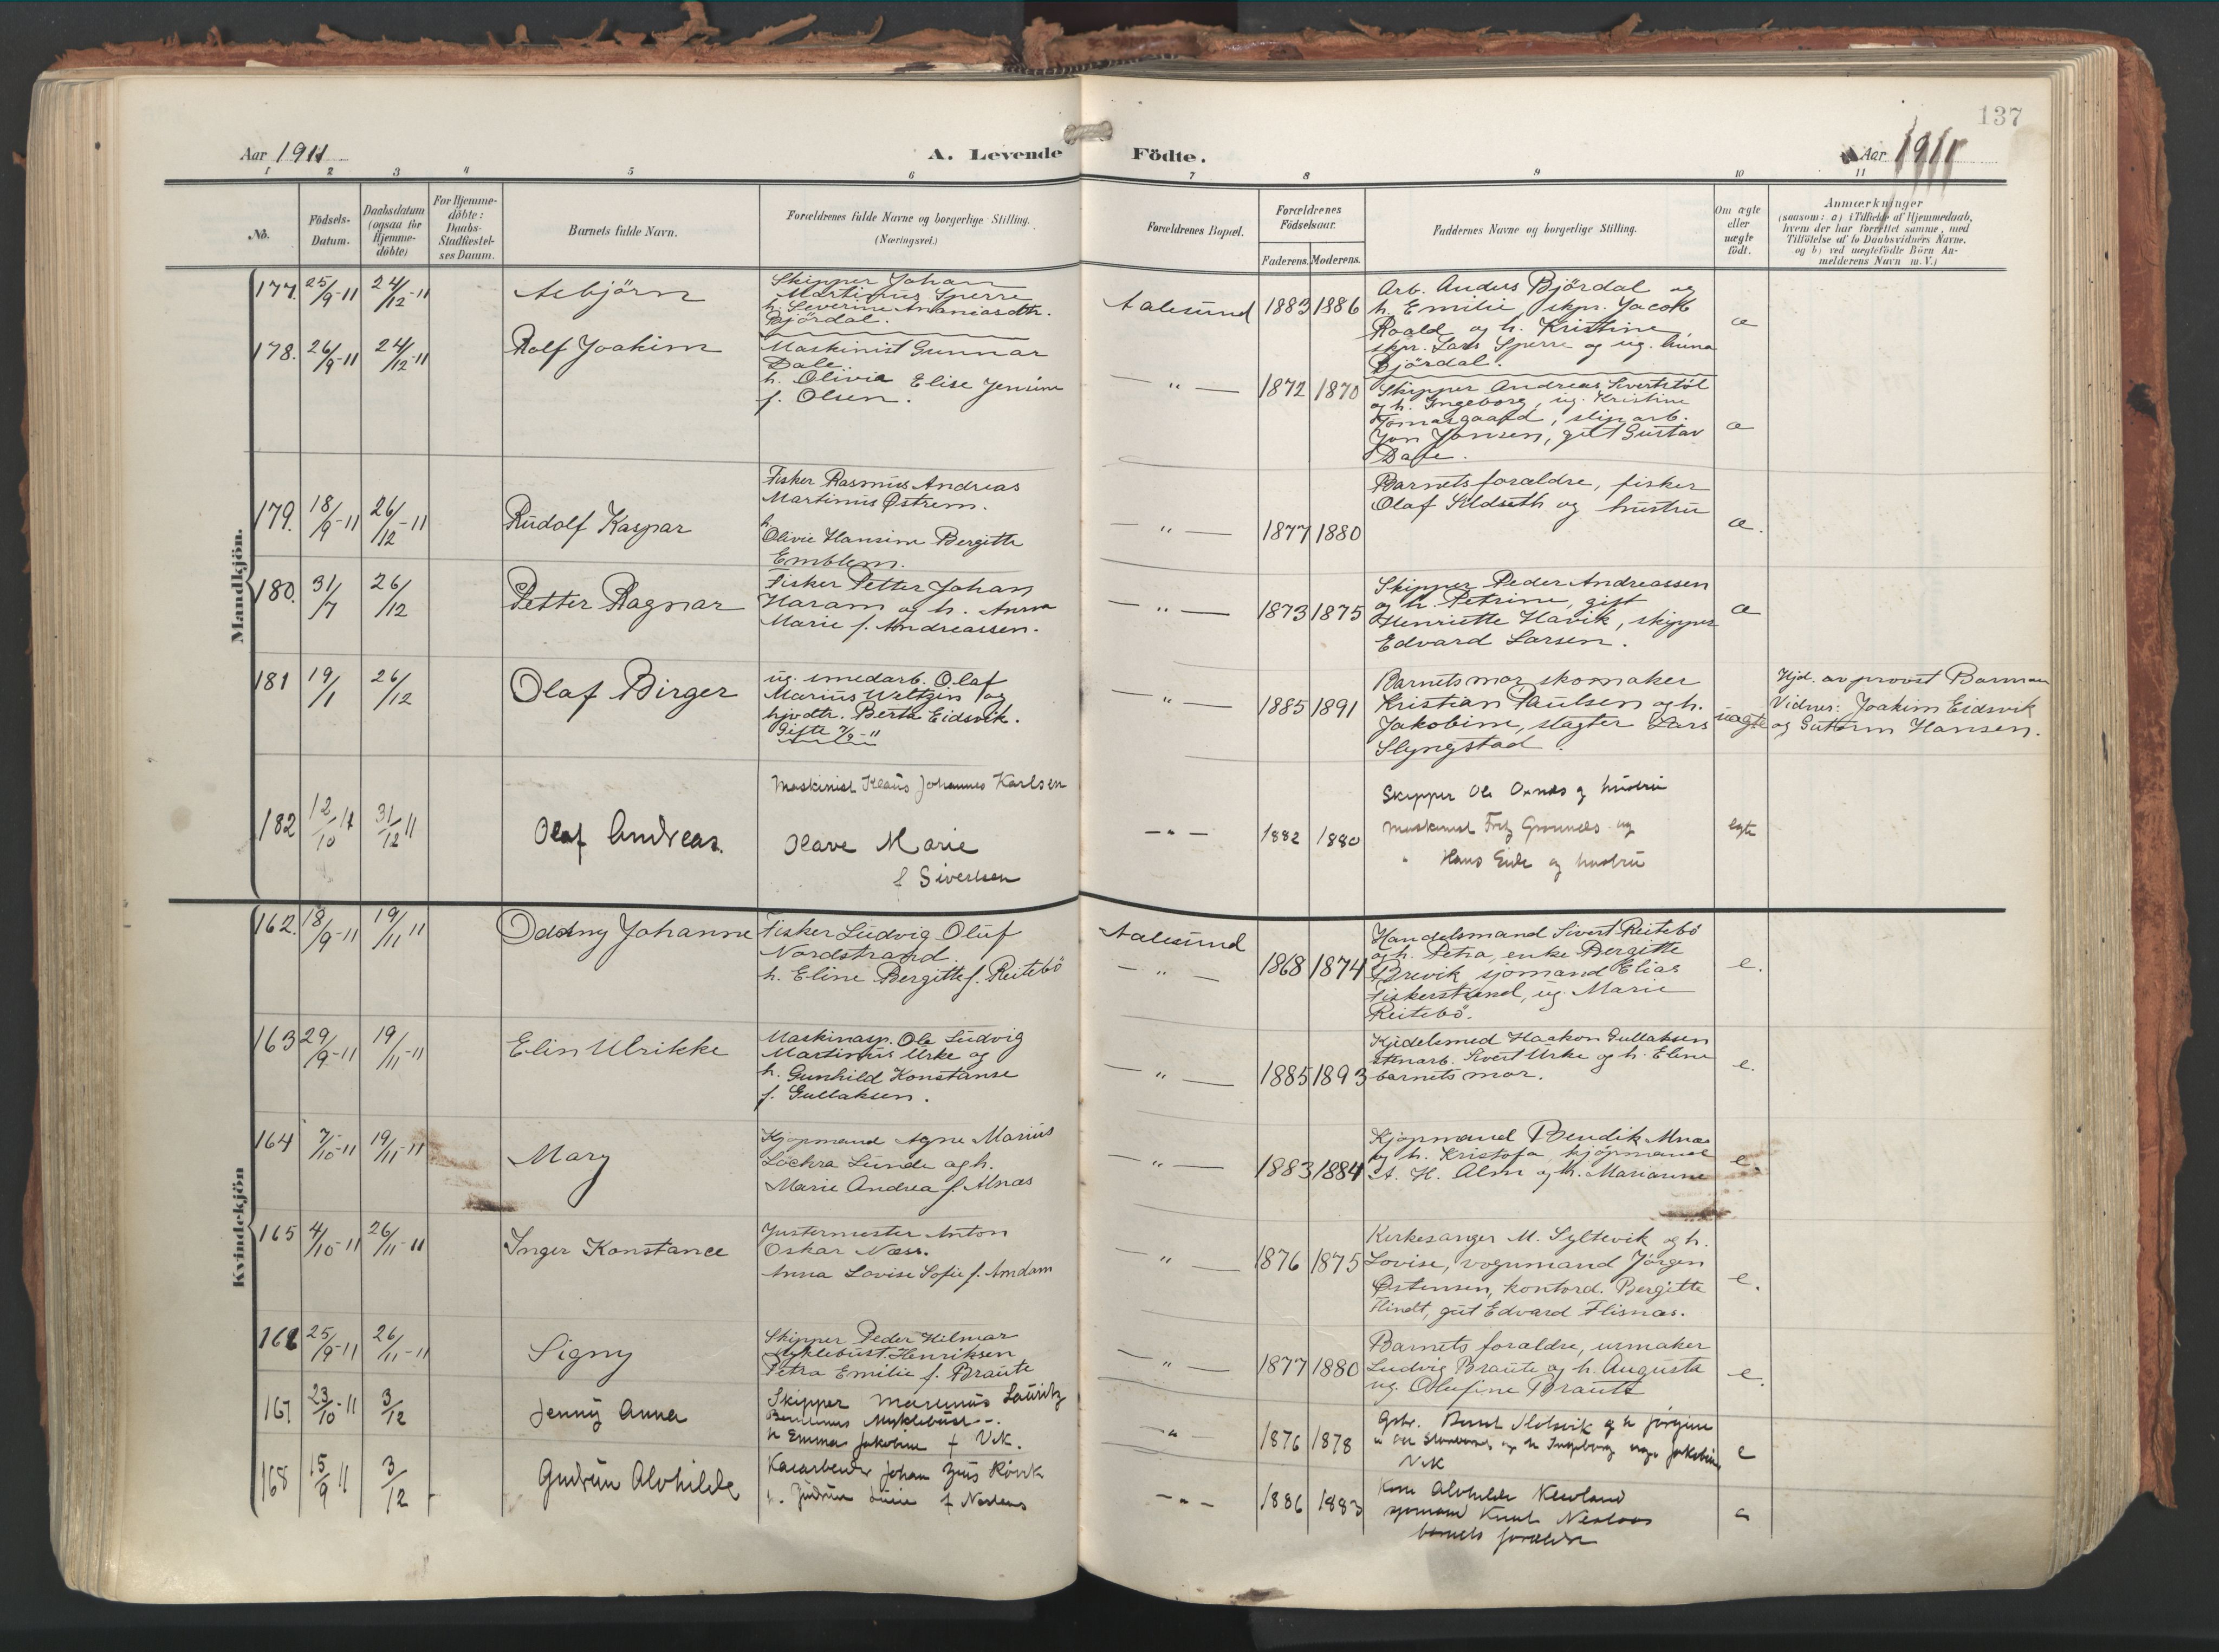 137
Aar 1911
A. Levende Födte.
Aar 1911
1 2 3 4 5 6 7 8 9 10 11
No.
Födsels-Datum.
Daabsdatum (ogsaa for Hjemme-döbte)
For Hjemme-döbte: Daabs-Stadfæstel-ses Datum.
Barnets fulde Navn.
Forældrenes fulde Navne og borgerlige Stilling.
(Næringsvei.)
Forældrenes Bopæl.
Forældrenes Födselsaar.
Faderens. Moderens.
Faddernes Navne og borgerlige Stilling.
Om ægte eller uægte födt.
Anmærkninger
(saasom: a) i Tilfælde af Hjemmedaab,
hvem der har forrettet samme, med
Tilföielse af to Daabsvidners Navne.
og b) ved uægtefödte Börn An-
melderens Navn m. V.)
Mandkjön.
177. 25/9-11 24/12-11
Asbjörn
Skipper Johan
Martinus Sperre
h. Severine Ananiasdtr.
Björdal.
Aalesund
1883 1886
Arb. Anders Björdal og
h. Emilie, skpr. Jacob
Roald og h. Kristine,
skpr. Lars Sperre og ug. Anna
Björdal.
æ
178. 26/9-11 24/12-11
Rolf Joakim
Maskinist Gunnar
Dale.
h. Olivia Elise Jensine
f. Olsen.
— " —
1872 1870
Skipper Andreas
og h. Ingeborg, ug. Kristine
Jon Jansen, gut Gustav
Dale.
æ
179. 18/9-11 26/12-11
Rudolf Kaspar
Fisker Rasmus Andreas
Martinus Østrem.
h
Olivie Hansine Bergitte
Emblem.
— " —
1877 1880
Barnets forældre, fisker
Olaf Sildseth og hustru
æ.
180. 31/7 26/12
Petter Ragnar
Fisker Petter Johan
Haram og h. Anna
Marie f. Andreassen.
— " —
1873 1875
Skipper Peder Andreassen
og h. Petrine, gift
Henriette Havik, skipper
Edvard Larsen.
æ
181 19/1 26/12
Olaf Birger
ug. smedarb. Olaf
Marius Weltzin og
hjvdtr. Berta Eidsvik.
Gifte
— " —
1885 1891
Barnets mor, skomaker
Kristian Paulsen og h.
Jakobine, slagter Lars
Slyngstad.
uægte
Hjd. av provst Barman
Vidner: Joakim Eidsvik
og Guttorm Hansen.
182 12/10 11 31/12 11
Olaf Andreas.
Maskinist Klaus Johannes Karlsen
Olave Marie
f Sivertsen
— " —
1882 1880
Skipper Ole Oxnes og hustru
Maskinist og
" Hans Eide og hustru
egte
Kvindekjön
162. 18/9-11 19/11 11
Oddny Johanne
Fisker Ludvig Oluf
Nordstrand.
h. Eline Bergitte f. Reitebö
Aalesund
— " —
1868 1874
Handelsmand Sivert Reitebö
og h. Petra, enke Bergitte
Brevik, sjömand Elias
Fiskerstrand, ug. Marie
Reitebö.
e.
163 29/9-11 19/11-11
Elin Ulrikke
Maskinasp. Ole Ludvig
Martinus Urke og
h. Gunhild Konstanse
f. Gullaksen.
— " —
1885 1893
Kjedelsmed Haakon Gullaksen
stenarb. Sivert Urke og h. Eline
barnets mor.
e.
164 7/10-11 19/11-11
Mary
Kjøpmand Agne Marius
Löchra Lunde og h.
Marie Andrea f. Alnæs
— " —
1883 1884
Kjøpmand Bendik Alnæs
og h. Kristofa, kjøpmand
A. H. Alm og h. Marianne
e.
165 4/10-11 26/11-11
Inger Konstance
Justermester Anton
Oskar Næss.
Anna Lovise Sofie f. Amdam
" —
1876 1875
Kirkesanger M. Syltevik og h.
Lovise, vognmand Jörgen
Østensen, kontord. Bergitte
Flindt, gut Edvard Flisnæs.
e.
166 25/9-11 26/11-11
Signy
Skipper Peder Hilmar
Myklebust Henriksen
Petra Emilie f. Braute
— " —
1877 1880
Barnets forældre, urmaker
Ludvig Braute og h. Augusta
ug. Olufine Braute
e.
167 23/10-11 3/12
Jenny Anna
Skipper Martinus Lauritz
Myklebust
h Emma Jakobine f Vik.
— " —
1876 1878
Gbr. og h Jörgine
og h Ingeborg Jakobine
Vik
e
168 15/9 11 3/12
Gudrun Alvhilde
Kaiarbeider Johan
h. Gudrun f
— " —
1886 1883
Kone Alvhilde
sjømand Knut
barnets forældre
e